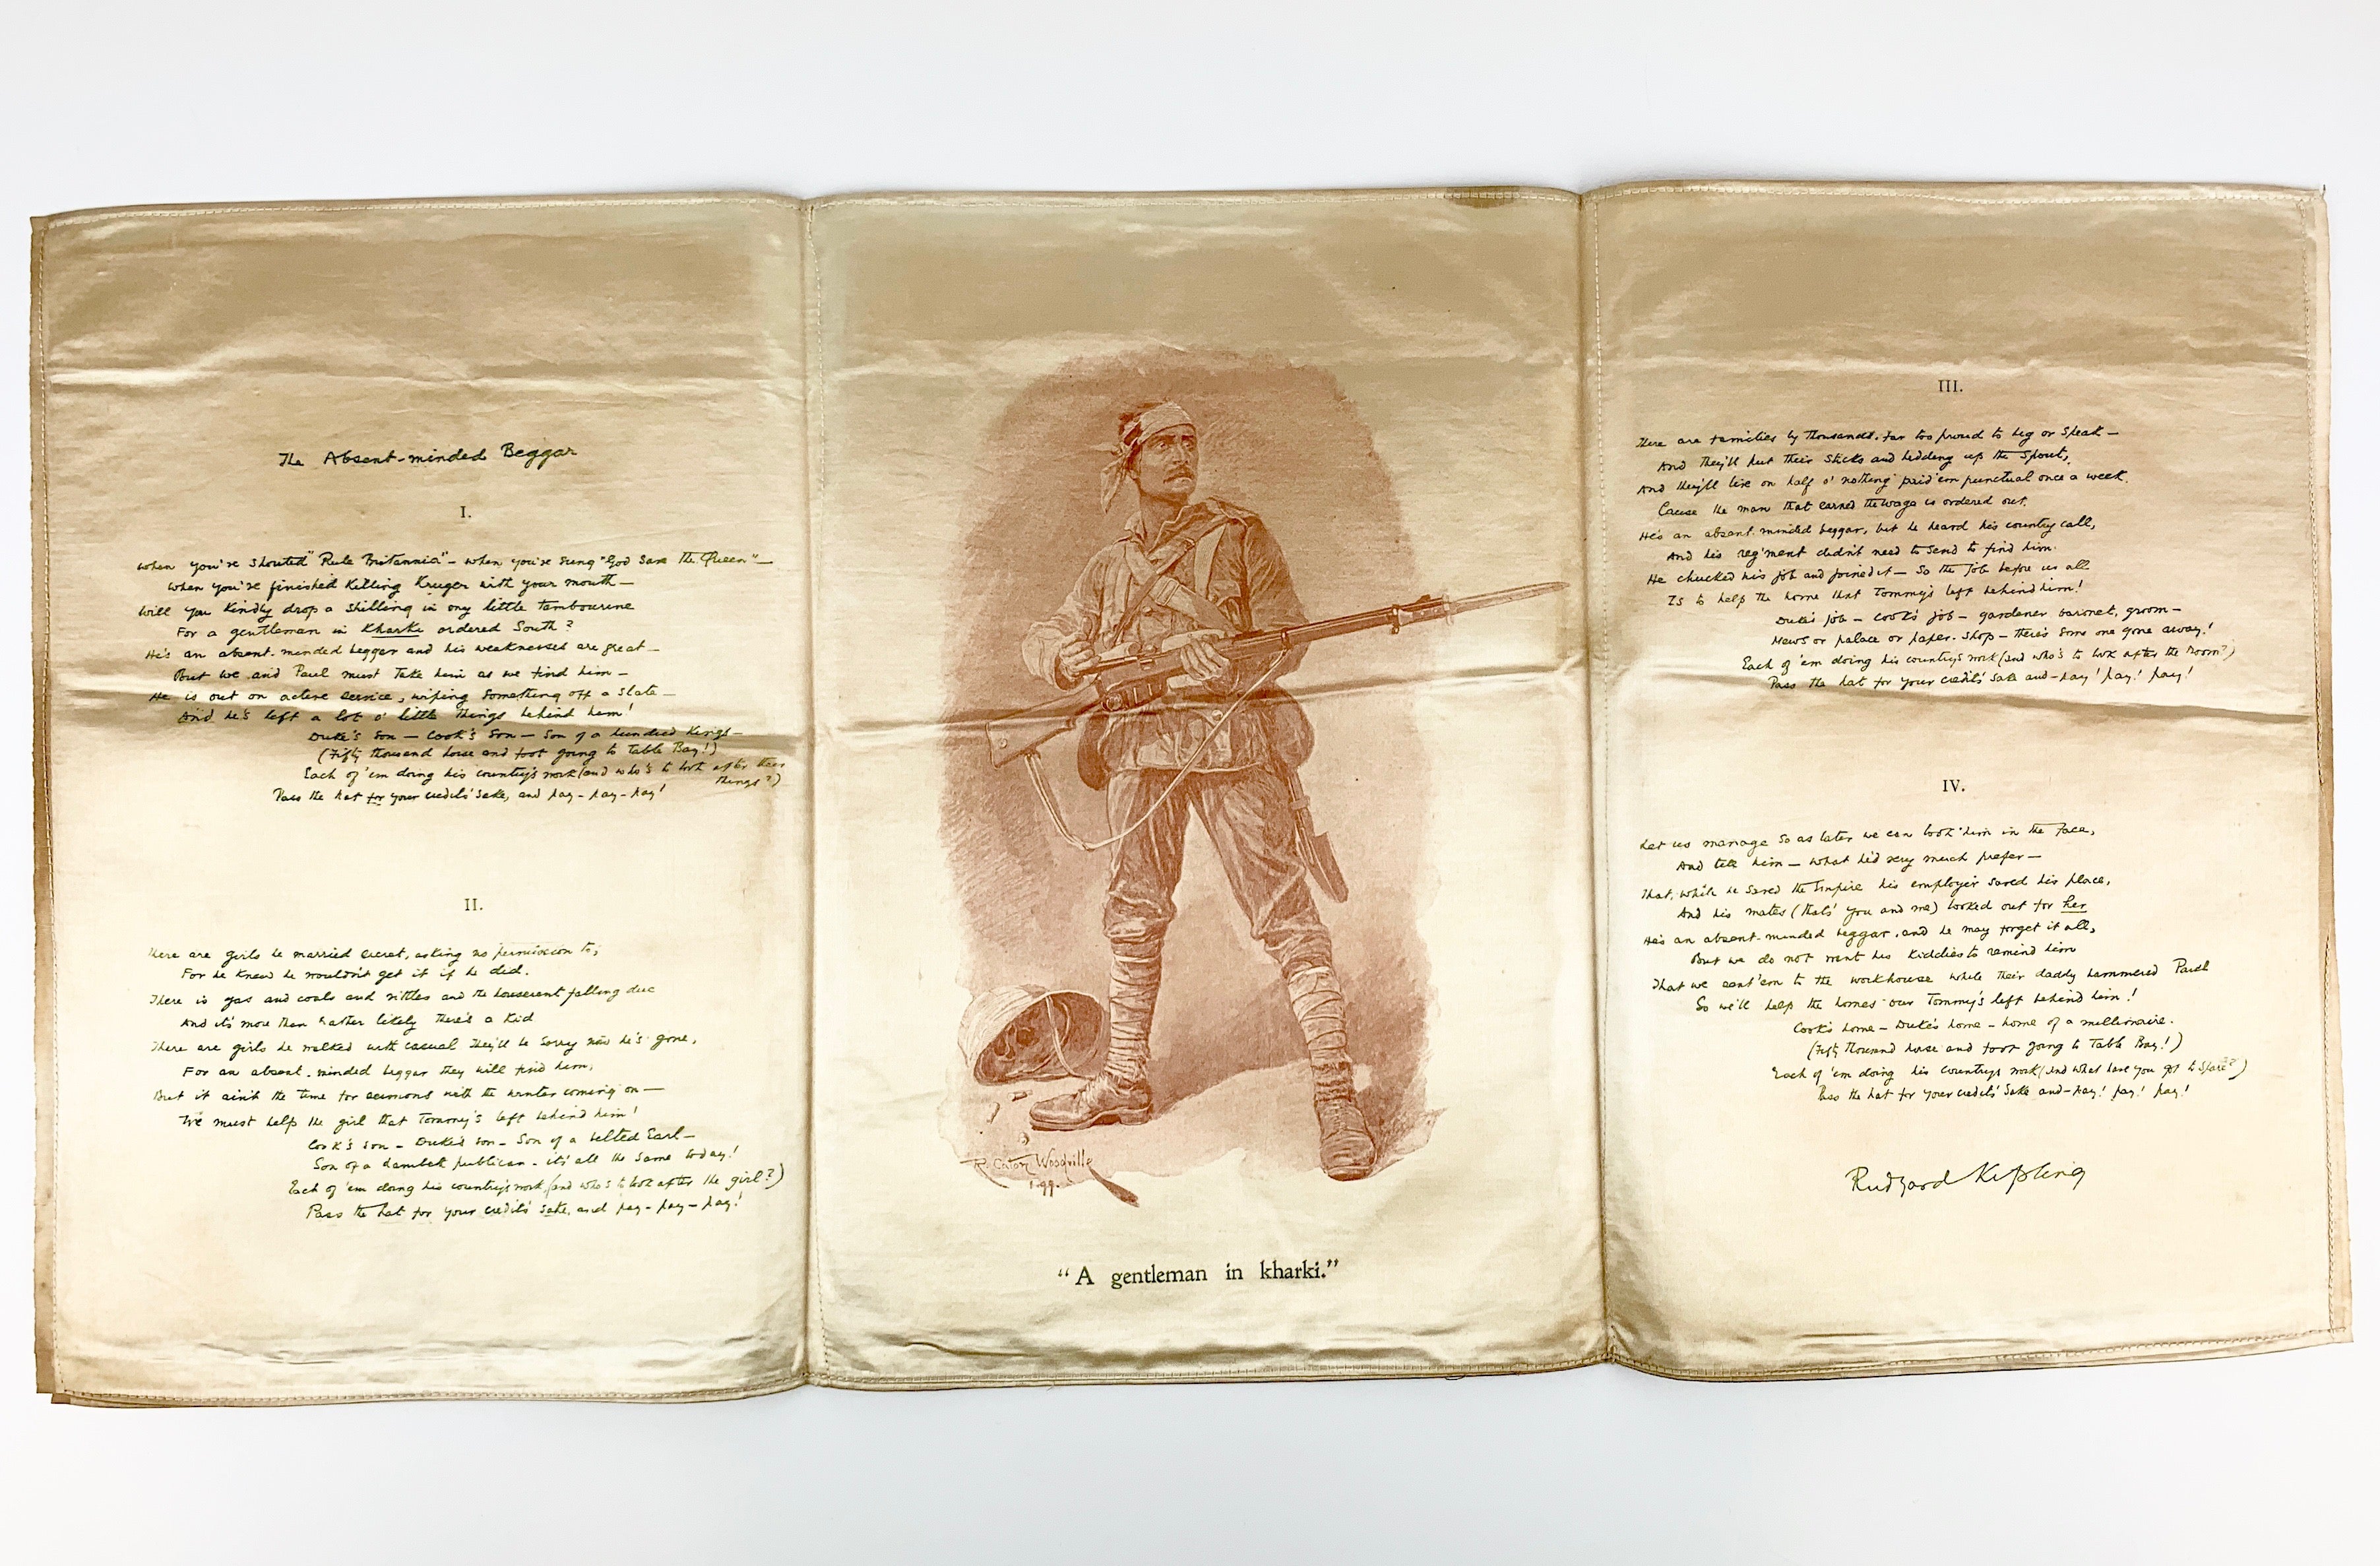 The Absent-minded Beggar
I.
When you've shouted "Rule Britannia" — when you've sung "God Save the Queen" —
When you've finished Killing Kruger with your mouth —
Will you Kindly drop a shilling in my little tambourine
For a gentleman in Kharki ordered South?
He's an absent-minded beggar and his weaknesses are great —
But we and Paul must take him as we find him —
He is out on active service, wiping something off a slate —
And he's left a lot o' little things behind him!
Duke's son — Cook's son — son of a hundred Kings —
(Fifty thousand horse and foot going to Table Bay!)
Each of 'em doing his country's work (and who's to look after their
things?)
Pass the hat for your credit's sake, and pay — pay — pay!
II.
There are girls he married secret, asking no permission to;
For he knew he wouldn't get it if he did.
There is gas and coals and vittles and the houserent falling due
And it's more than rather likely there's a Kid
There are girls he walked with casual They'll be sorry now he's gone,
For an absent-minded beggar they will find him,
But it ain't the time for sermons with the winter coming on —
We must help the girl that Tommy's left behind him!
Cook's son — Duke's son — Son of a belted Earl —
Son of a Lambeth publican — it's all the same today!
Each of 'em doing his country's work (and who's to look after the girl?)
Pass the hat for your credit's sake, and pay — pay — pay!
R. Caton Woodville
1.99.
"A gentleman in kharki."
III.
There are families by thousands, far too proud to beg or speak —
And they'll put their sticks and bedding up the spout,
And they'll live on half o' nothing paid 'em punctual once a week
Cause the man that earned the wage is ordered out.
He's an absent-minded beggar, but he heard his country call,
And his reg'ment didn't need to send to find him.
He chucked his job and joined it — So the job before us all
Is to help the home that Tommy's left behind him!
Duke's job — Cook's job — gardener baronet, groom —
Mews or palace or paper-shop — there's some one gone away!
Each of 'em doing his country's work (and who's to look after the room?)
Pass the hat for your credit's sake and — pay! pay! pay!
IV.
Let us manage so as later we can look him in the face,
And tell him — what he'd very much prefer —
That, while he saved the Empire his employer saved his place,
And his mates (that's you and me) looked out for her
He's an absent-minded beggar, and he may forget it all,
But we do not want his Kiddies to remind him
That we sent 'em to the workhouse while their daddy hammered Paul
So we'll help the homes our Tommy's left behind him!
Cook's home — Duke's home — home of a millionaire.
(Fifty thousand horse and foot going to Table Bay!)
Each of 'em doing his country's work (and what have you got to spare?)
Pass the hat for your credit's sake and — pay! pay! pay!
Rudyard Kipling